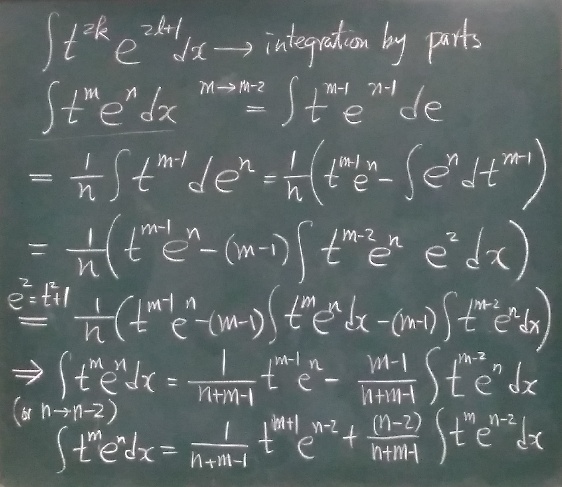 ∫t^{2k} e^{2l+1} dx → integration by parts
∫t^m e^n dx  m→m-2 = ∫t^{m-1} e^{n-1} de
= 1/n ∫t^{m-1} de^n = 1/n (t^{m-1} e^n - ∫e^n dt^{m-1})
= 1/n (t^{m-1} e^n - (m-1) ∫t^{m-2} e^n e^2 dx)
e^2 = t^2+1 = 1/n (t^{m-1} e^n - (m-1) ∫t^m e^n dx - (m-1) ∫t^{m-2} e^n dx)
⇒ ∫t^m e^n dx = 1/(n+m-1) t^{m-1} e^n - (m-1)/(n+m-1) ∫t^{m-2} e^n dx
(or n→n-2)
∫t^m e^n dx = 1/(n+m-1) t^{m+1} e^{n-2} + (n-2)/(n+m-1) ∫t^m e^{n-2} dx